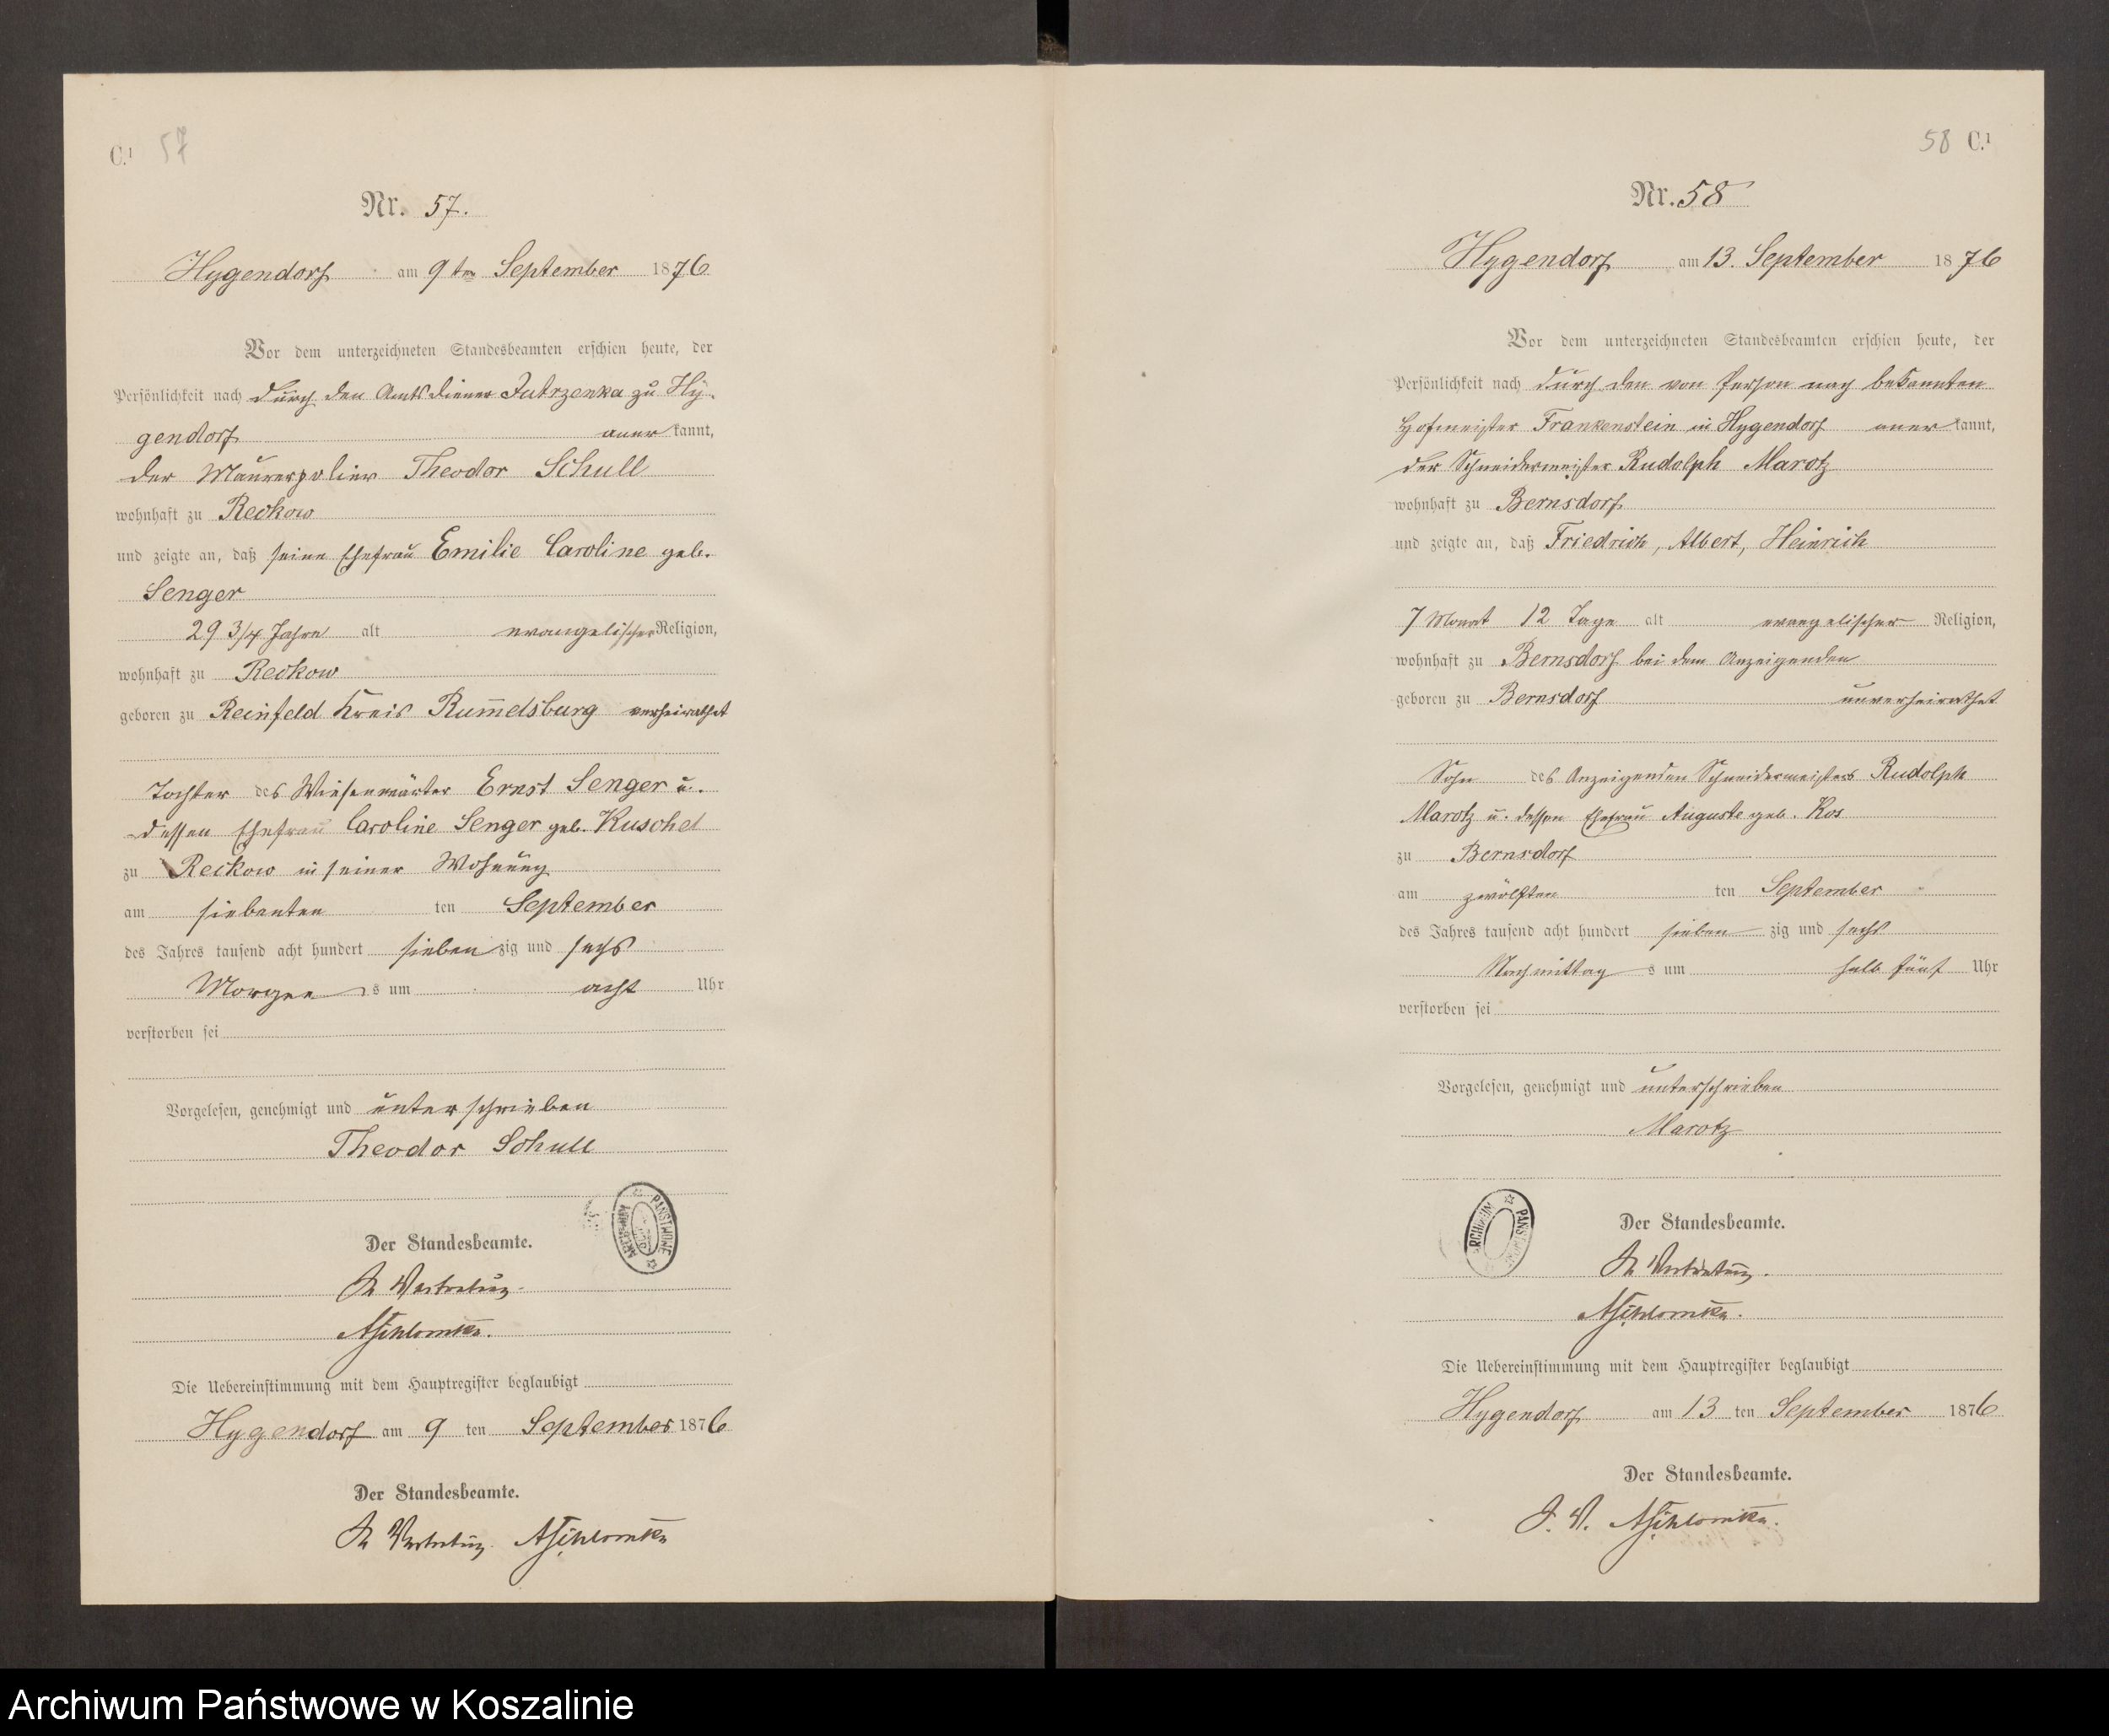 C.¹ 57
Nr. 57.
Hygendorf am 9ten September 1876
Vor dem unterzeichneten Standesbeamten erschien heute, der
Persönlichkeit nach durch den Amtsdiener Jutrzenka zu Hy-
gendorf anerkannt,
der Maurerpolier Theodor Schull
wohnhaft zu Reckow
und zeigte an, daß seine Ehefrau Emilie Caroline geb.
Senger
29 3/4 Jahre alt evangelischer Religion,
wohnhaft zu Reckow
geboren zu Reinfeld Kreis Rum̄elsburg verheirathet
Tochter des Wiesenwärter Ernst Senger u.
dessen Ehefrau Caroline Senger geb. Kuschel
zu Reckow in seiner Wohnung
am siebenten ten September
des Jahres tausend acht hundert siebenzig und sechs
Morgens um acht Uhr
verstorben sei
Vorgelesen, genehmigt und unterschrieben
Theodor Schull
ARCHIWUM PAŃSTWOWE
Der Standesbeamte.
In Vertretung.
Die Uebereinstimmung mit dem Hauptregister beglaubigt
Hygendorf am 9 ten September 1876
Der Standesbeamte.
In Vertretung.
58 C.¹
Nr. 58
Hygendorf am 13. September 1876
Vor dem unterzeichneten Standesbeamten erschien heute, der
Persönlichkeit nach durch den von Person nach bekannten
Hofmeister Frankenstein in Hygendorf anerkannt,
der Schneidermeister Rudolph Marotz
wohnhaft zu Bernsdorf
und zeigte an, daß Friedrich, Albert, Heinrich
7 Monat 12 Tage alt evangelischer Religion,
wohnhaft zu Bernsdorf bei dem Anzeigenden
geboren zu Bernsdorf unverheirathet
Sohn des Anzeigenden Schneidermeisters Rudolph
Marotz u. dessen Ehefrau Auguste geb. Kos
zu Bernsdorf
am zwölften ten September
des Jahres tausend acht hundert siebenzig und sechs
Nachmittags um halb fünf Uhr
verstorben sei
Vorgelesen, genehmigt und unterschrieben
Marotz
ARCHIWUM PAŃSTWOWE
Der Standesbeamte.
In Vertretung.
Die Uebereinstimmung mit dem Hauptregister beglaubigt
Hygendorf am 13 ten September 1876
Der Standesbeamte.
I. V.
Archiwum Państwowe w Koszalinie